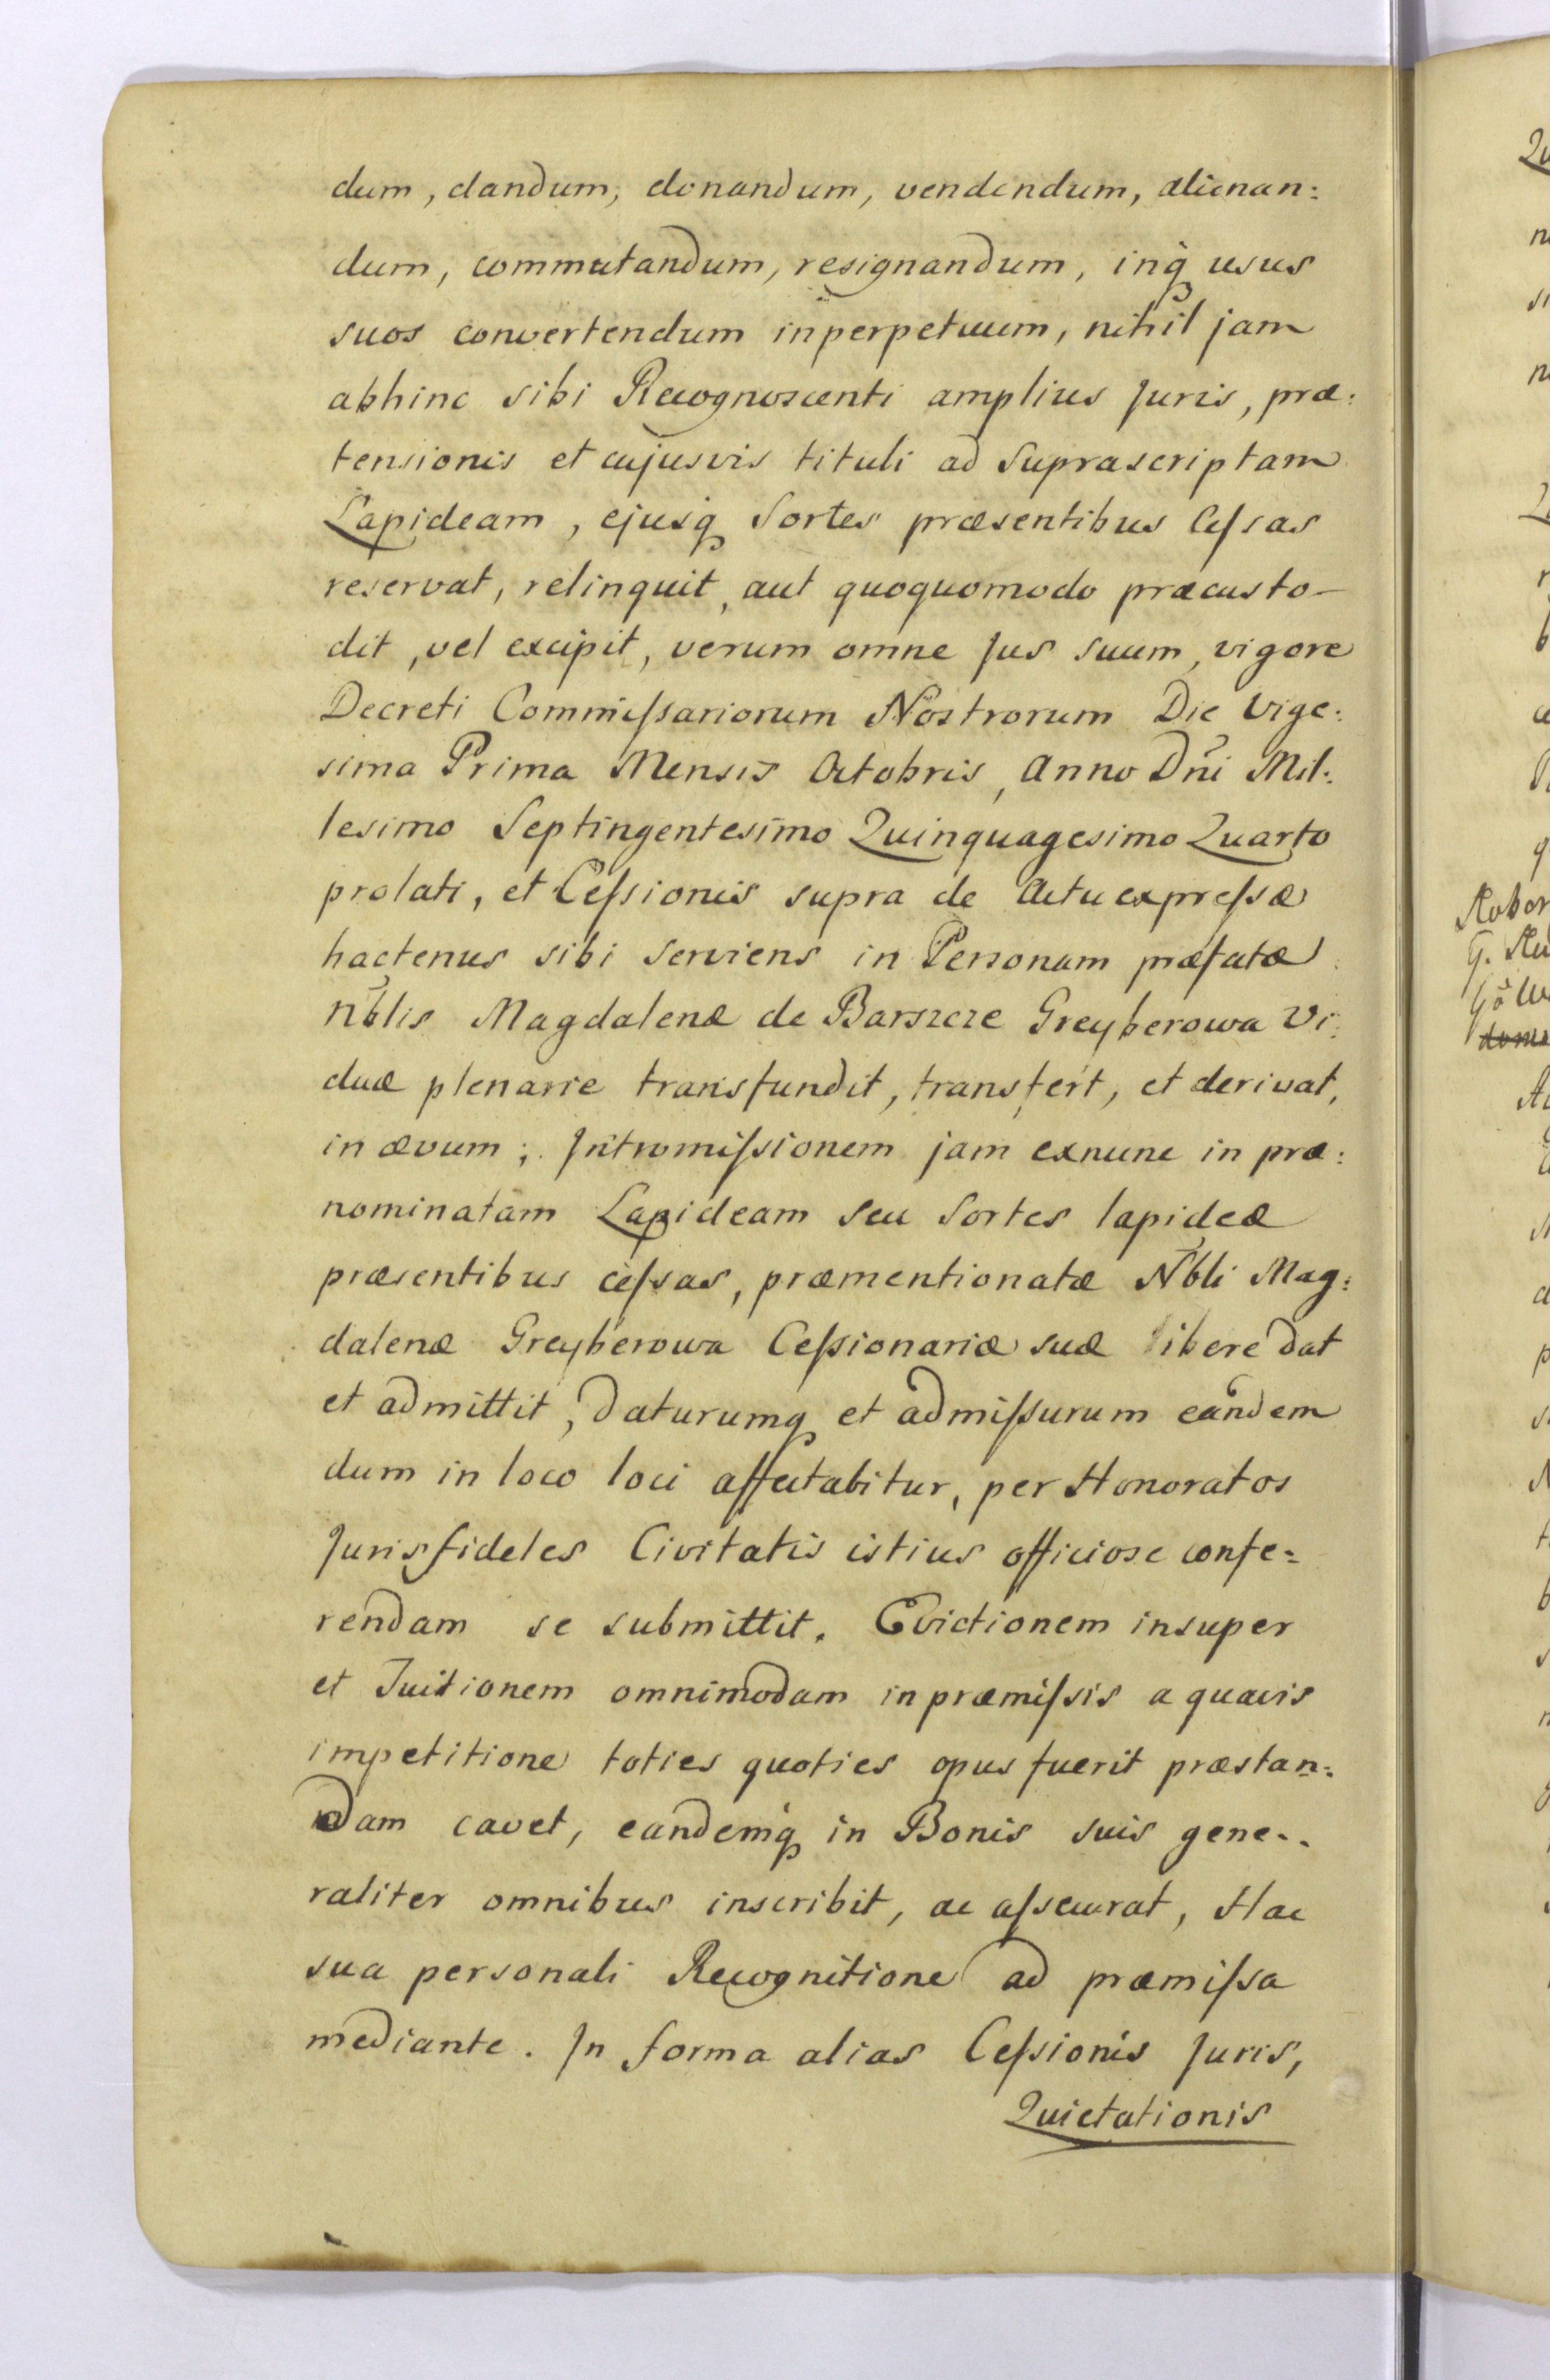 dum, dandum, donandum, vendendum, alienan:
dum, commutandum, resignandum, inq́ꝫ usus
suos convertendum inperpetuum, nihil jam
abhinc sibi Recognoscenti amplius Juris, præ:
tensionis et cujusvis tituli ad Suprascriptam
Lapideam, ejusq́ꝫ Sortes præsentibus Ceſsas
reservat, relinquit, aut quoquomodo præcusto-
dit, vel excipit, verum omne Jus suum, vigore
Decreti Commiſsariorum Nostrorum Die Vige:
sima Prima Mensis Octobris, Anno Dñi Mil:
lesimo Septingentesimo Quinquagesimo Quarto
prolati, et Ceſsionis supra de Actu expreſsæ
hactenus sibi Serviens in Personam præfatæ
Nb̃lis Magdalenæ de Barszcze Greyberowa Vi:
duæ plenarie transfundit, transfert, et derivat,
in ævum; Intromiſsionem jam exnunc in præ:
nominatam Lapideam seu Sortes lapideæ
præsentibus ceſsas, præmentionatæ Nb̃li Mag:
dalenæ Greyberowa Ceſsionariæ suæ libere dat
et admittit, daturumqꝫ et admiſsurum eandem
dum in loco loci affectabitur, per Honoratos
Jurisfideles Civitatis istius officiose confe=
rendam se submittit. Evictionem insuper
et Tuitionem omnimodam in præmiſsis a quavis
impetitione toties quoties opus fuerit præstan:
dam cavet, eandemq́ꝫ in Bonis suis gene..
raliter omnibus inscribit, ac aſsecurat, Hac
sua personali Recognitione ad præmiſsa
mediante. In forma alias Ceſsionis Juris,
Quietationis